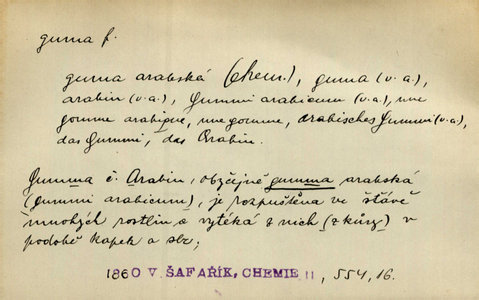 guma f.
guma arabská (chem.), guma (v. a.),
arabin (v. a.), Gummi arabicum (v. a.), une
gomme arabique, une gomme, arabisches Gummi (v. a.),
das Gummi, das Arabin.
Gumma č. Arabin, obyčejně gumma arabská
(gummi arabicum), je rozpuštěna ve šťávě
mnohých rostlin a vytéká z nich (z kůry) v
podobě kapek a slz;
1860 V. ŠAFAŘÍK, CHEMIE II, 554, 16.